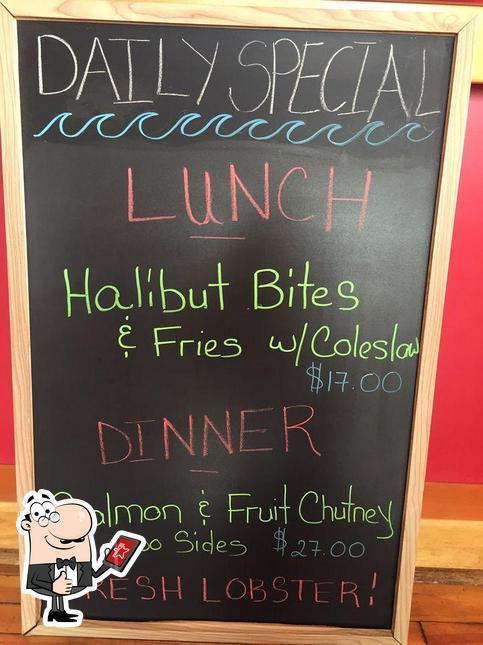 DAILY SPECIAL
LUNCH
Halibut Bites
& Fries w/Coleslaw
$17.00
DINNER
Salmon & Fruit Chutney
Sides $27.00
FRESH LOBSTER!